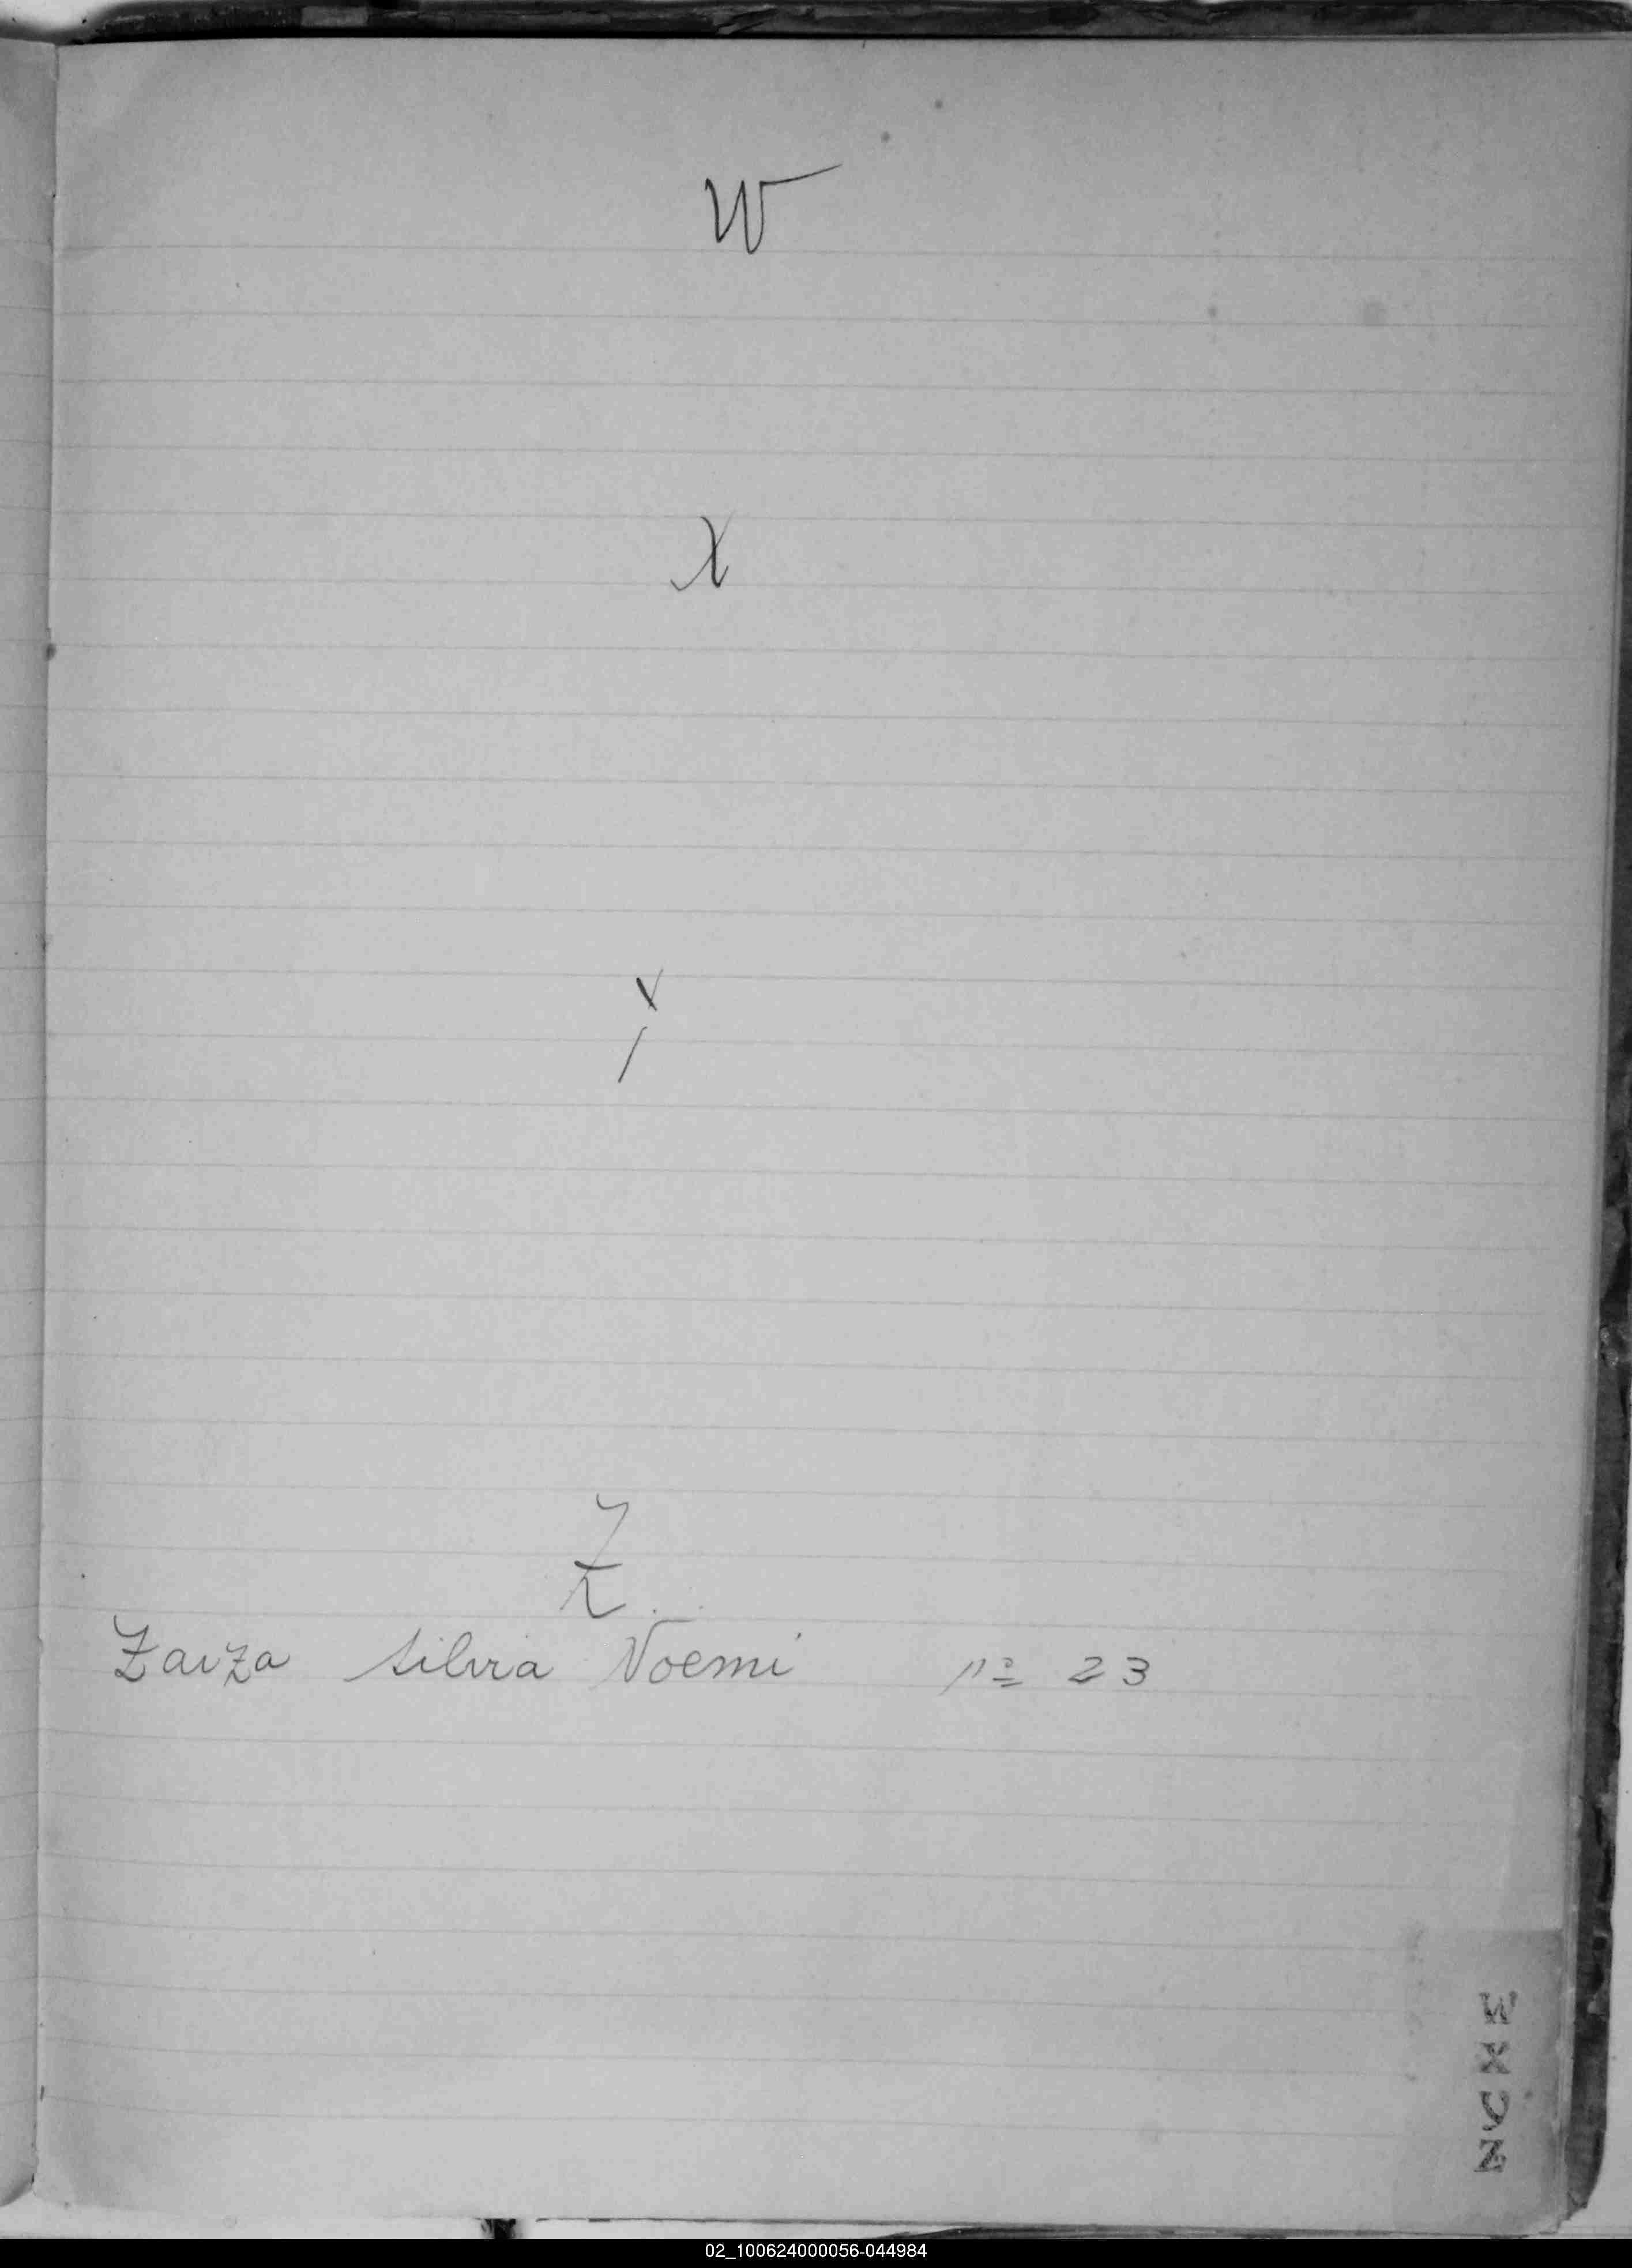 W
X
Y
Z
Zarza Silvia Noemi nº 23
W X Y Z
02_100624000056-044984